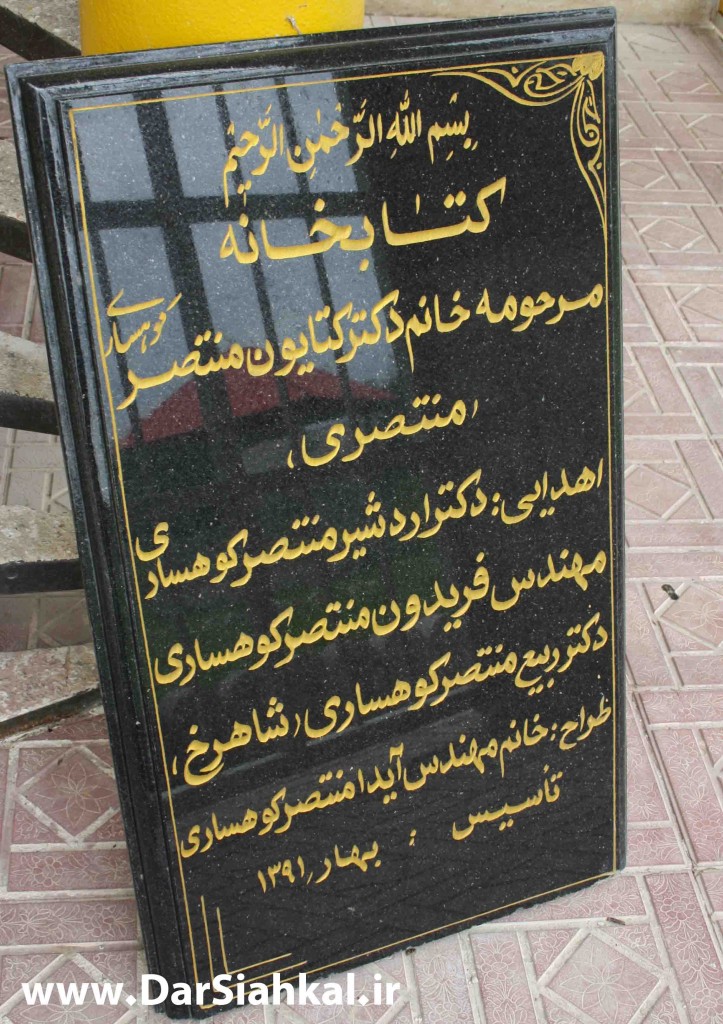 بِسْمِ اللهِ الرَّحْمٰنِ الرَّحیْمْ
کتابخانه
مرحومه خانم دکتر کتایون منتصر کوهساری
(منتصری)
اهدایی: دکتر اردشیر منتصر کوهساری
مهندس فریدون منتصر کوهساری
دکتر ربیع منتصر کوهساری (شاهرخ)
طراح: خانم مهندس آیدا منتصر کوهساری
تأسیس : بهار ۱۳۹۱
www.DarSiahkal.ir